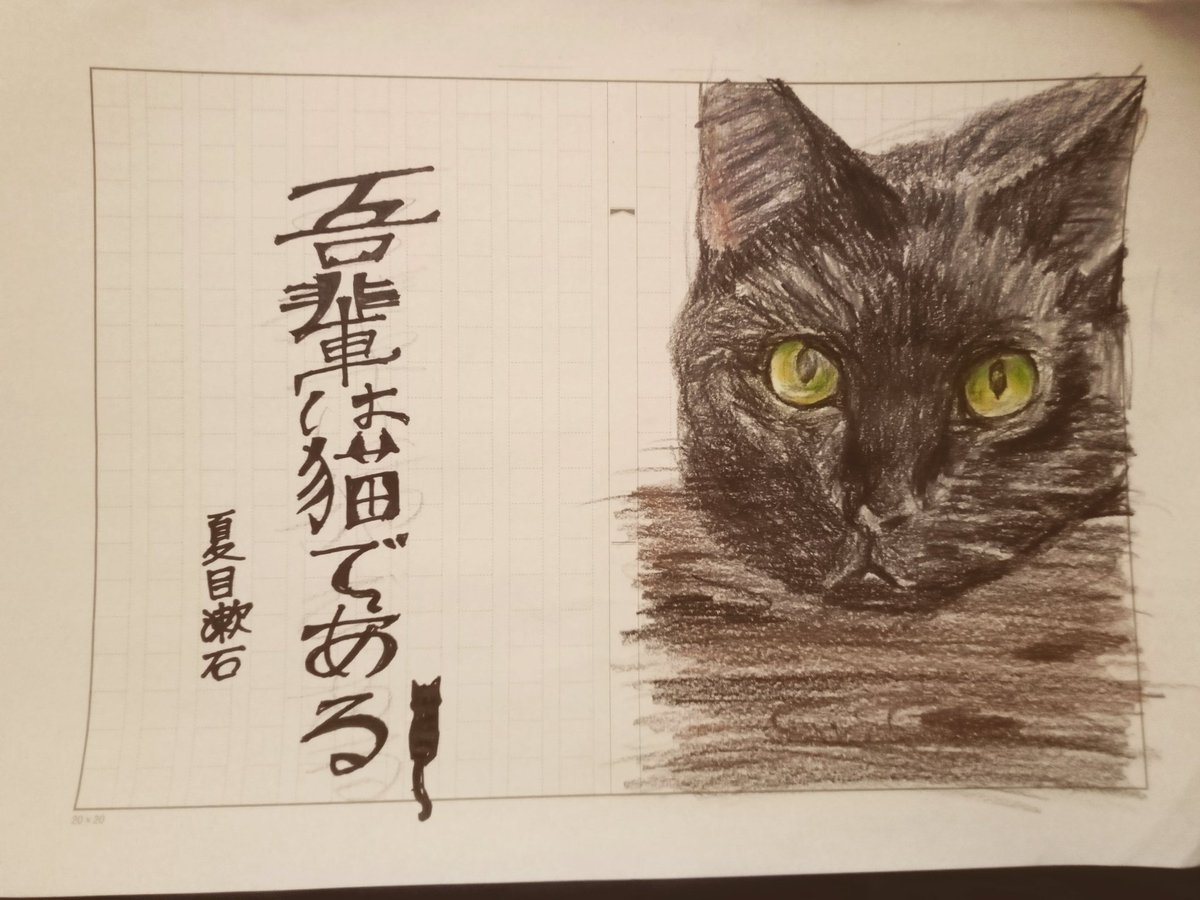 吾輩は猫である
夏目漱石
20×20